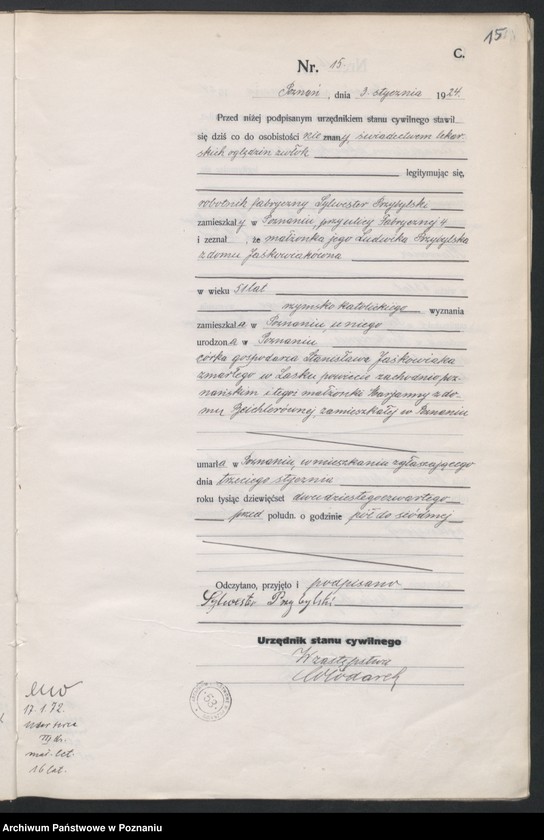 15
C.
Nr. 15.
Poznań, dnia 3. stycznia 1924.
Przed niżej podpisanym urzędnikiem stanu cywilnego stawił
się dziś co do osobistości znany, świadectwem lekar-
skich oględzin zwłok
legitymując się,
robotnik fabryczny Sylwester Przybylski
zamieszkały w Poznaniu, przy ulicy Fabrycznej 4
i zeznał, że małżonka jego Ludwika Przybylska
z domu Jaśkowiakówna
w wieku 51 lat
rzymsko katolickiego wyznania
zamieszkała w Poznaniu, u niego
urodzona w Poznaniu
córka gospodarza Stanisława Jaśkowiaka
zmarłego w Lasku powiecie zachodnio poz-
nańskim i tegoż małżonki Marjanny z do-
mu zamieszkałej w Poznaniu
umarła w Poznaniu, w mieszkaniu zgłaszającego
dnia trzeciego stycznia
roku tysiąc dziewięćset dwudziestego czwartego
przed połudn. o godzinie pół do siódmej
Odczytano, przyjęto i podpisano
Sylwester Przybylski
Urzędnik stanu cywilnego
W zastępstwie
Włodarek
53
17.1.72.
16 lat.
Archiwum Państwowe w Poznaniu